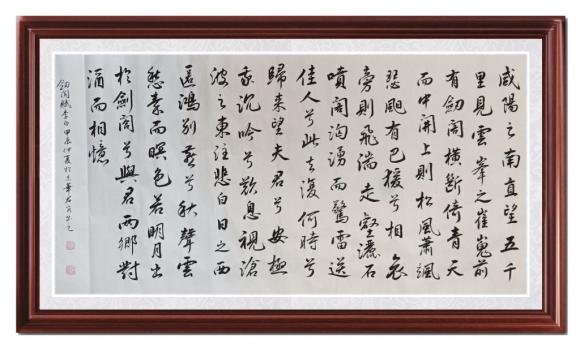 咸陽之南直望五千
里見雲峯之崔嵬前
有劒閣橫斷倚青天
而中開上則松風蕭颯
瑟颶有巴猨兮相哀
旁則飛湍走壑灑石
噴閣洶湧而驚雷送
佳人兮此去復何時兮
歸來望夫君兮安極
我沉吟兮歎息視滄
波之東注悲白日之西
匿鴻別燕兮秋聲雲
愁秦而暝色若明月出
於劍閣兮與君兩鄉對
酒而相憶
劒閣賦李白甲辰仲夏於京華